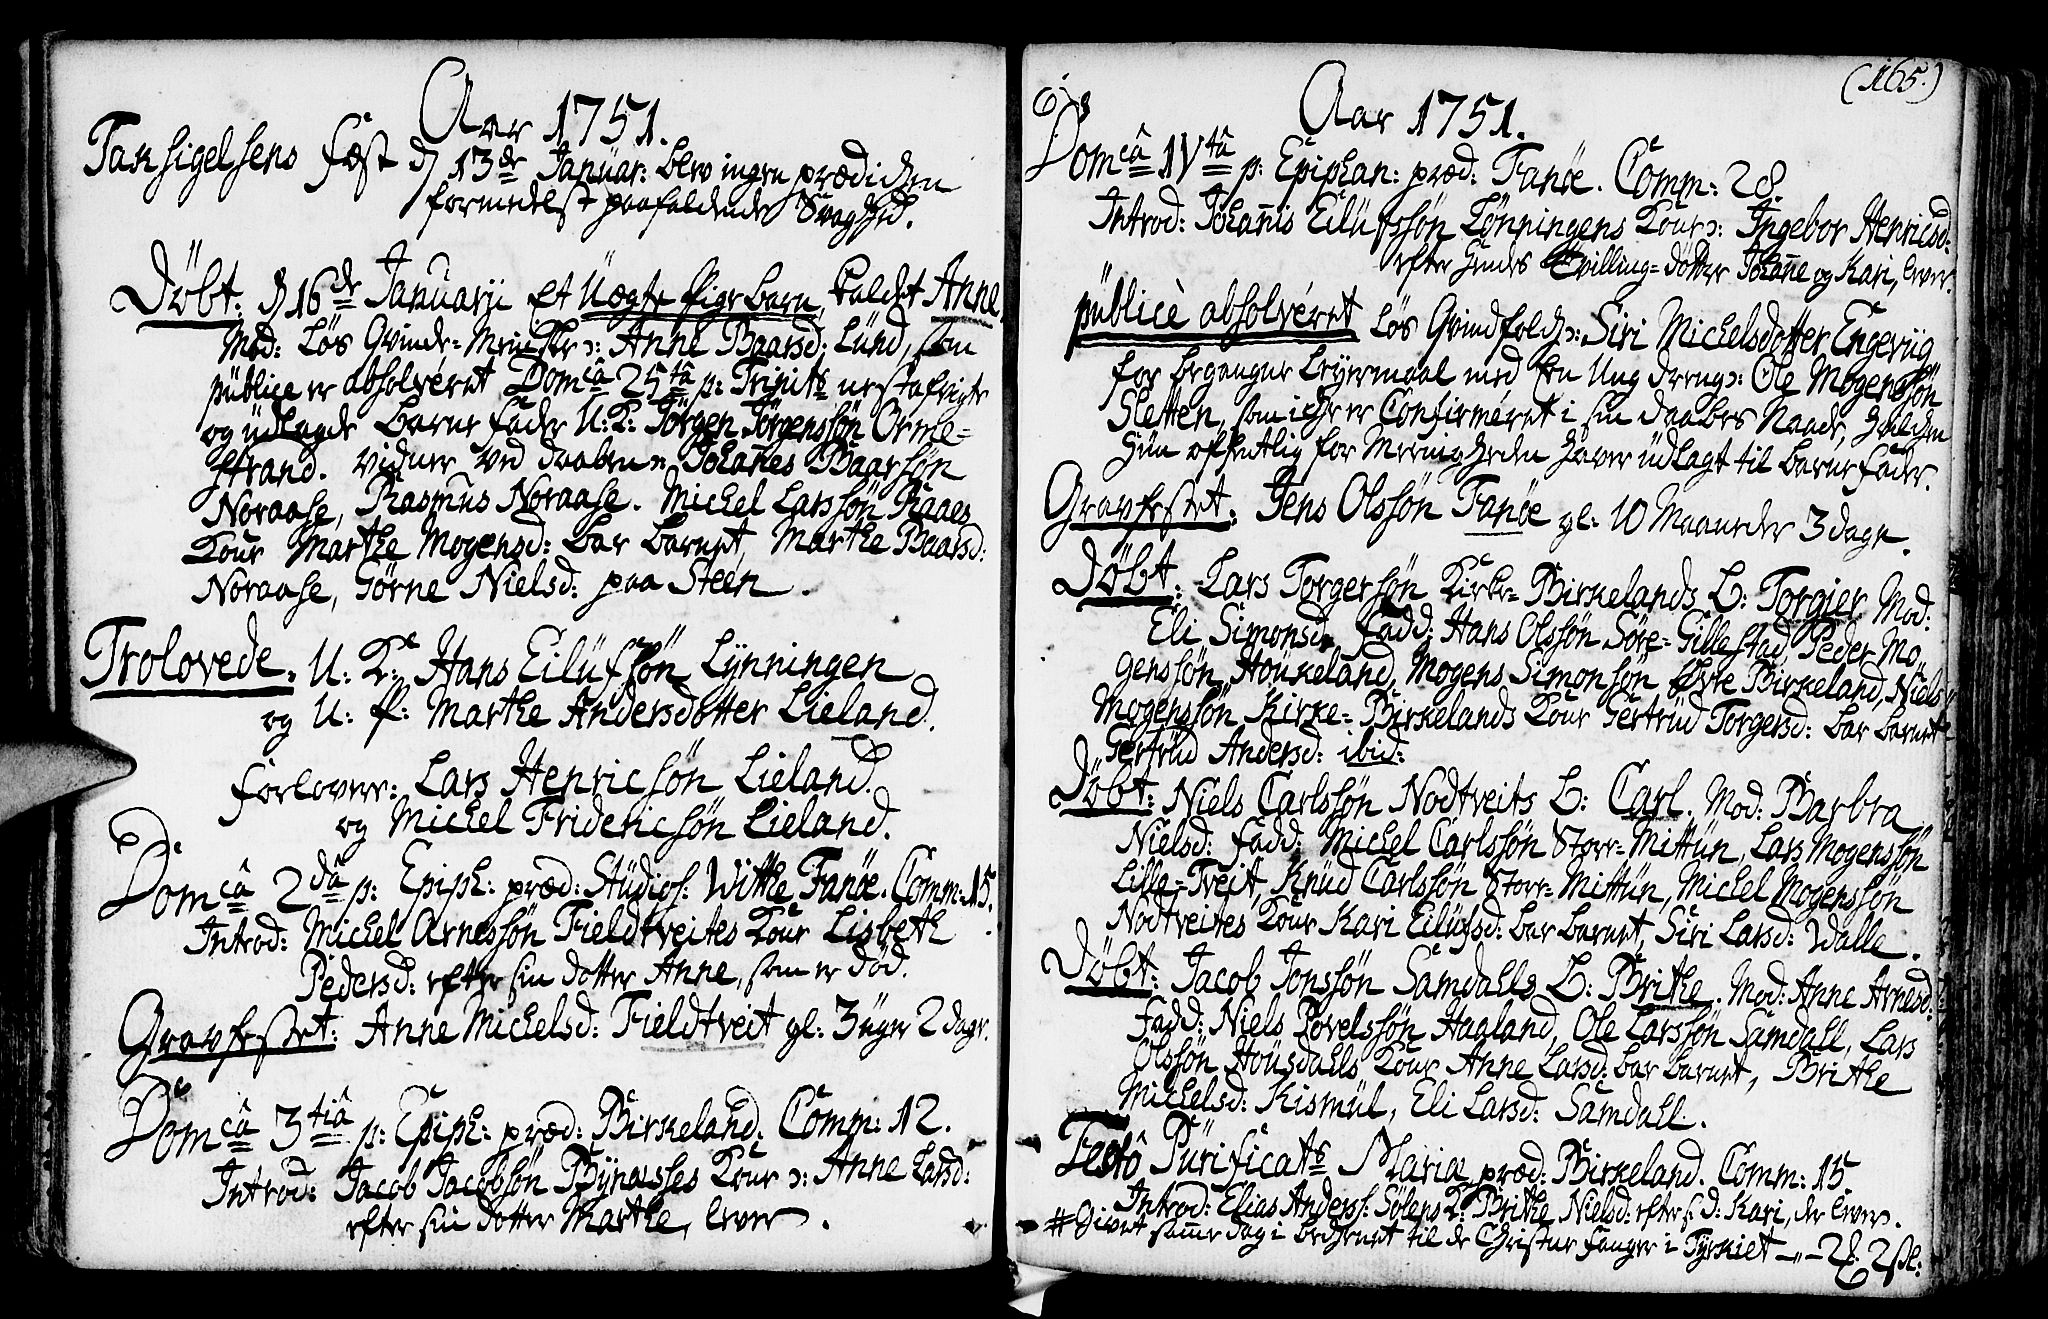 Aar 1751.
Taksigelsens fæst d 13de Januar: blev ingen prædichen
formedelst paafaldende Svaghed.
Döbt: d 16de Januarii et Uægte Pige barn, kaldet Anne,
Mod: Lös Qvinde-Menskе ɔ: Anne Baarsd: Lund, som
publice er absolvéret Domcâ 25tâ p: Trinits nestafvigte
og udlagde barne fader U: K: Törgen Törgenssön Orme-
strand. Vidner ved daaben: Johanes Baarsön
Noraase, Rasmus Noraase. Michel Larssön Raaes
Kone Marthe Mogensd: bar barnet, Marthe Baarsd:
Noraase, Görne Nielsd: paa Steen.
Trolovede. U: K: Hans Eilüfsön Lÿnningen
og U: P: Marthe Andersdotter Lieland.
forlovere: Lars Henricsön Lieland.
og Michel Fridericsön Lieland.
Domcâ 2dâ p: Epiph: præd: Studios: Withe Fanöe. Comm: 15.
Introd: Michel Arnessön Fieldtveites Kone Lisbeth
Pedersd: efter sin dotter Anne, som er död.
Gravfestet: Anne Michelsd: Fieldtveit gl: 3 uger 2 dage.
Domcâ 3tiâ p: Epiph: præd: Birkeland. Comm: 12.
Introd: Jacob Jacobsön Bÿnæsses Kone ɔ: Anne Larsd:
efter sin dotter Marthe, lever.
(165.)
Aar 1751.
Domcâ IVtâ p: Epiphan: præd: Fanöe. Comm: 28.
Introd: Johañis Eilüfssön Lönningens Kone ɔ: Ingebor Henricsd:
efter hendes Tvilling-döttre Johañe og Kari, lever.
publicè absolvéret Lös Qvindfolch ɔ: Siri Michelsdotter Engeviig
for begangne Leyermaal med en Ung dreng ɔ: Ole Mogenssön
Sletten, som icke er Confirméret i sin daabes Naade, hvilchen
hun offentlig for Meenigheden haver üdlagt til barnefader.
Gravfestet: Jens Olssön Fanöe gl: 10 Maaneder 3 dage.
Döbt: Lars Torgersön Kirke-Birkelands B: Torgier Mod:
Eli Simonsd, Fadd: Hans Olssön Söre-Gillestad, Peder Mo
genssön Houkeland, Mogens Simonsön Övre Birkeland, Niels
Mogenssön Kirke-Birkelands Kone Gertrüd Torgersd: bar barnet
Gertrüd Andersd: ibid:
Döbt: Niels Carlssön Nodtveits B: Carl. Mod: Barbra
Nielsd: fadd: Michel Carlssön Store-Mittün, Lars Mogenssön
Lille-Tveit, Knüd Carlssön Store-Mittün, Michel Mogenssön
Nodtveites Kone Kari Eilüfsd: bar barnet, Siri Larsd: Walle.
Döbt: Jacob Jonssön Samdahls B: Brithe. Mod: Anne Arnesd:
Fadd: Niels Povelssön Haaland, Ole Larssön Samdall, Lars
Olssön Housdahls Kone Anne Larsd: bar barnet, Brithe
Michelsd: Kismül, Eli Larsd: Samdahl.
Festô Pürificats Mariæ præd: Birkeland. Comm: 15.
Introd: Elias Anderss: Sölens K: Brithe Nielsd: efter s: d: Kari, der lever.
# Givet samme dag i bechenet til de Christne fanger i Tÿrkiet — - 2 2 sk: